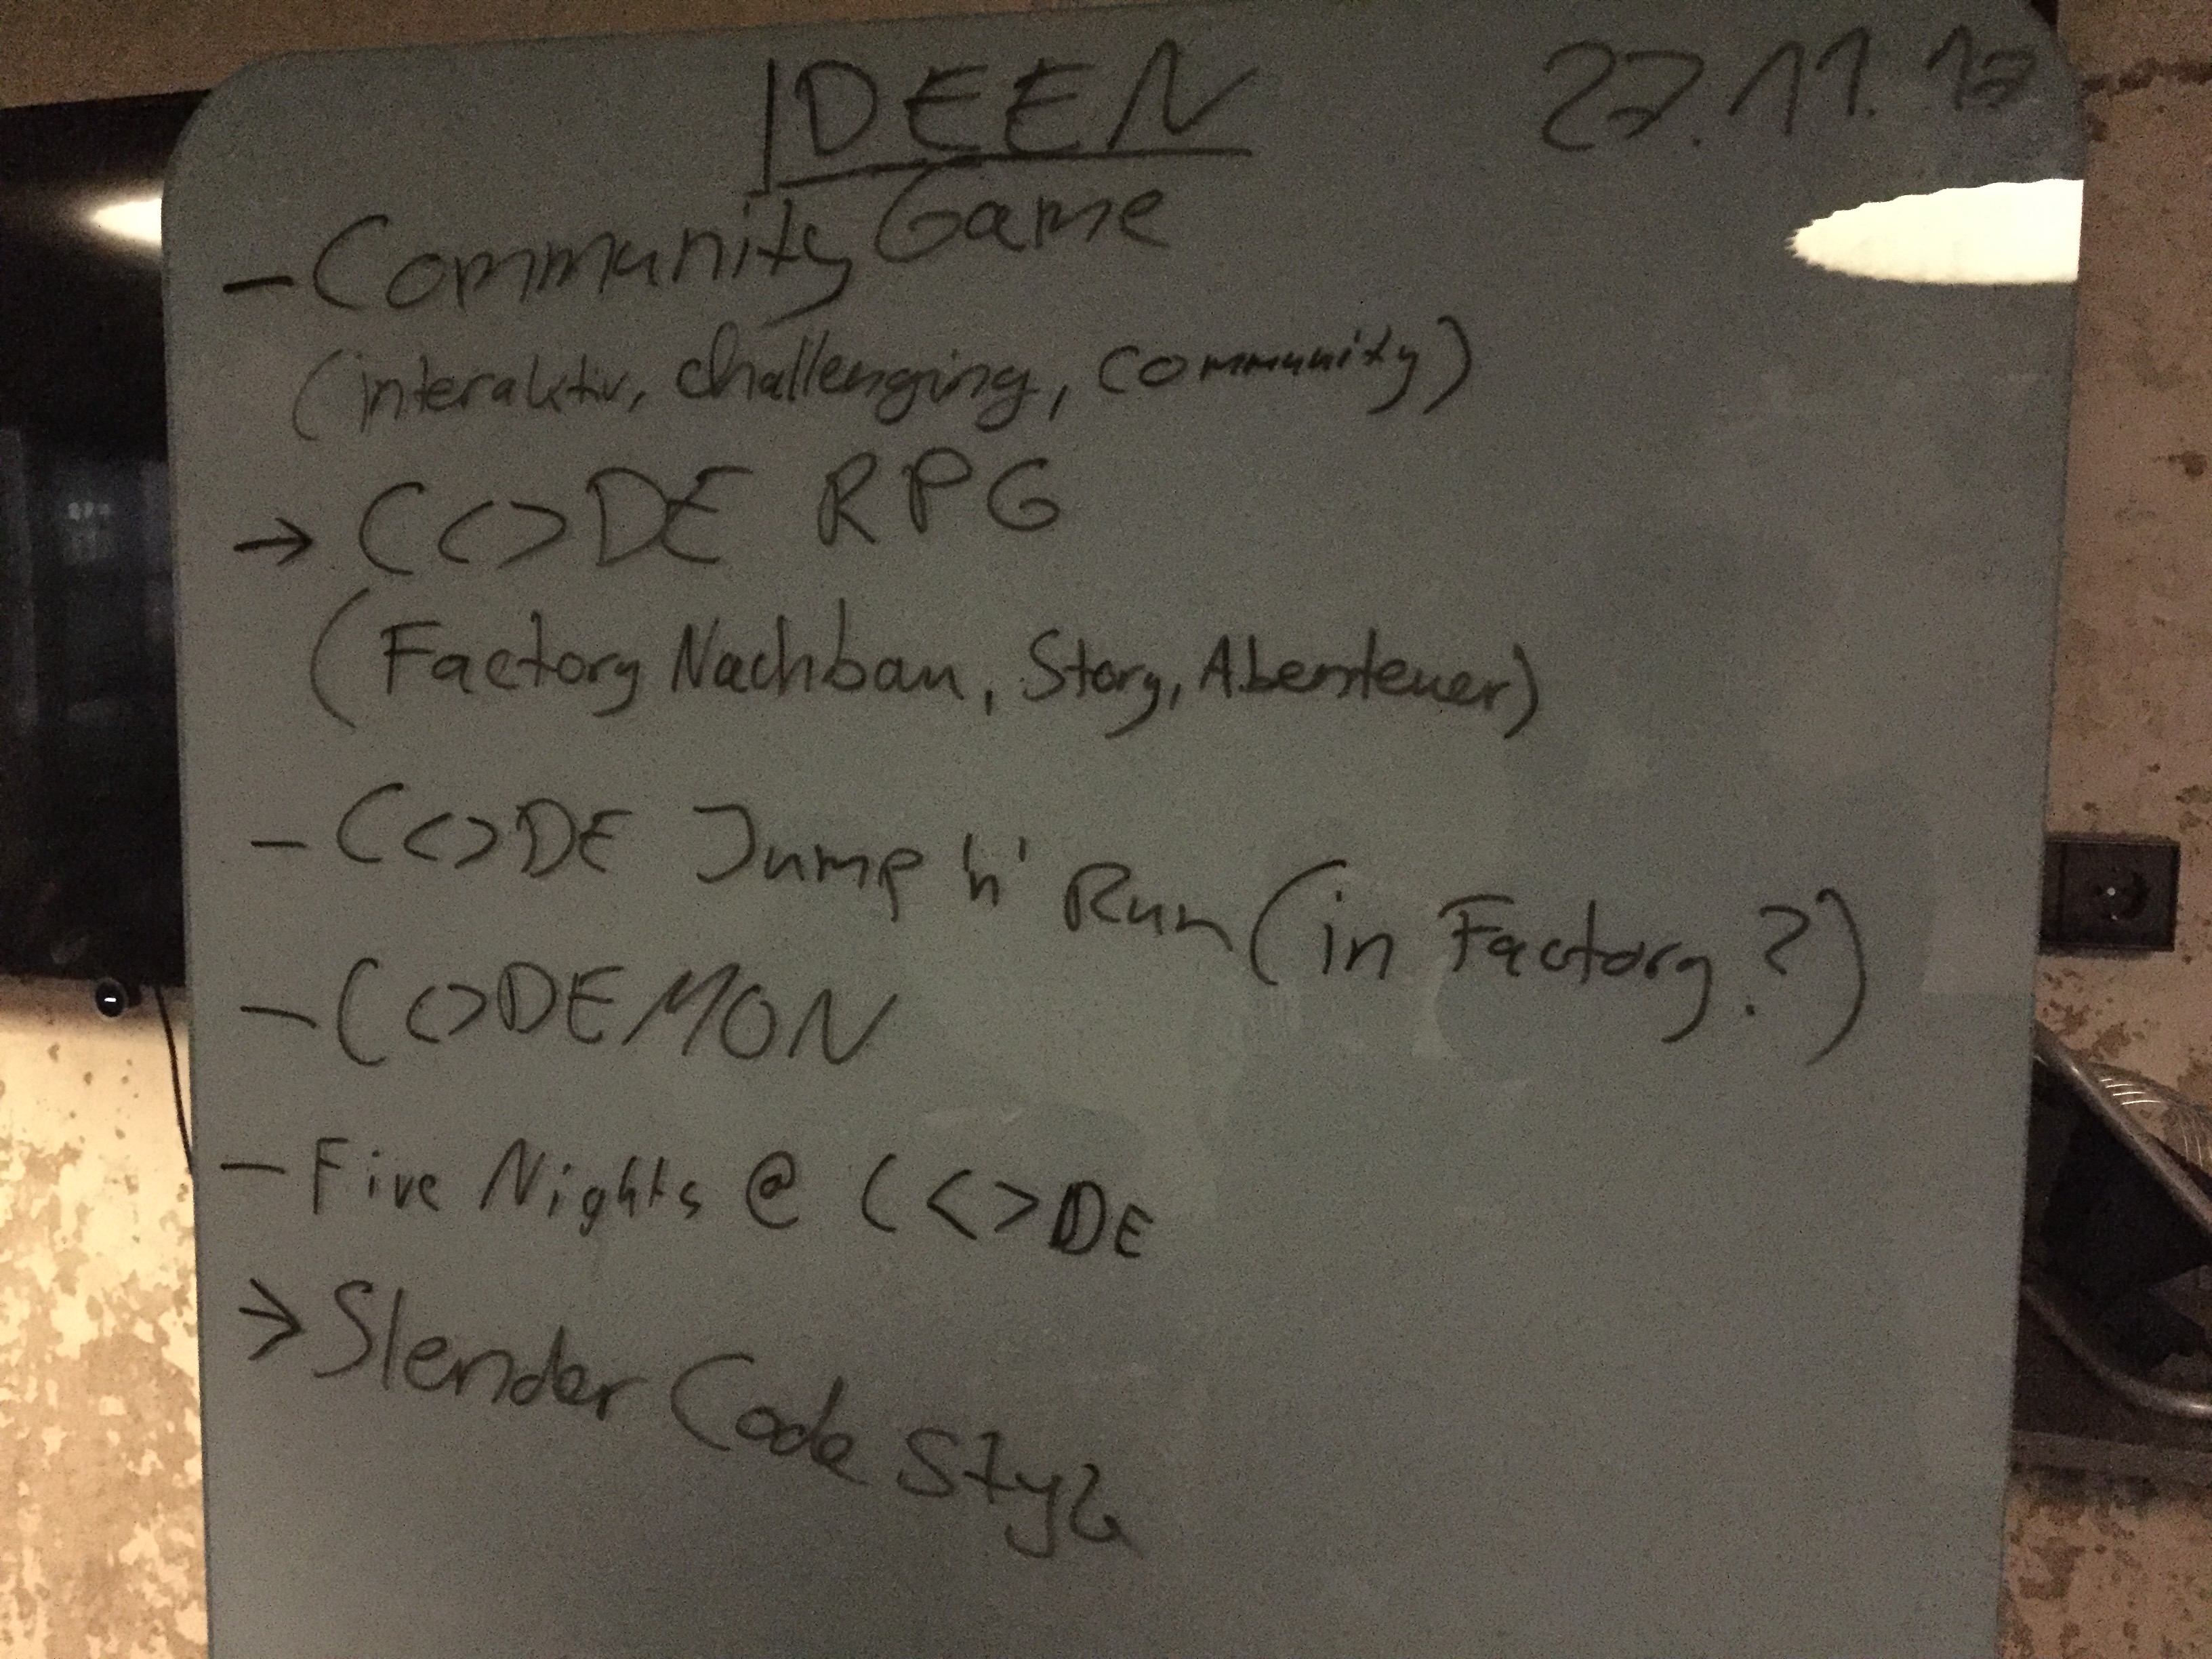 IDEEN 27.11.17
- Community Game
(interaktiv, challenging, community)
→ C<>DE RPG
(Factory Nachbau, Story, Abenteuer)
- C<>DE Jump 'n' Run (in Factory?)
- C<>DEMON
- Five Nights @ C<>DE
→ Slender Code Style